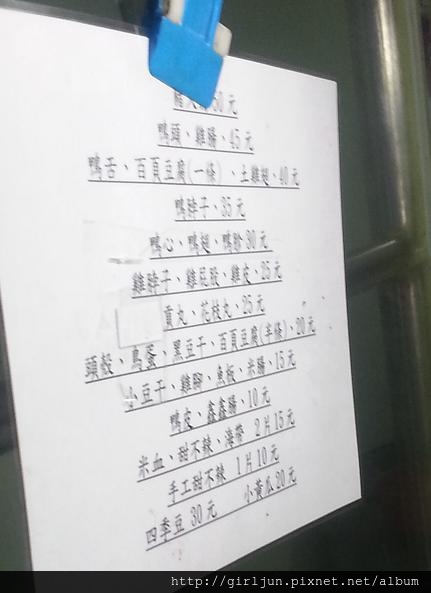 50元
鴨頭、雞腸、45元
鴨舌、百頁豆腐(一條)、土雞翅、40元
鴨脖子、35元
鴨心、鴨翅、鴨胗30元
雞脖子、雞屁股、雞皮、25元
貢丸、花枝丸、25元
頭殼、鳥蛋、黑豆干、百頁豆腐(半條)、20元
小豆干、雞腳、魚板、米腸、15元
鴨皮、鑫鑫腸、10元
米血、甜不辣、海帶 2片15元
手工甜不辣 1片10元
四季豆30元 小黃瓜20元
http://girljun.pixnet.net/album